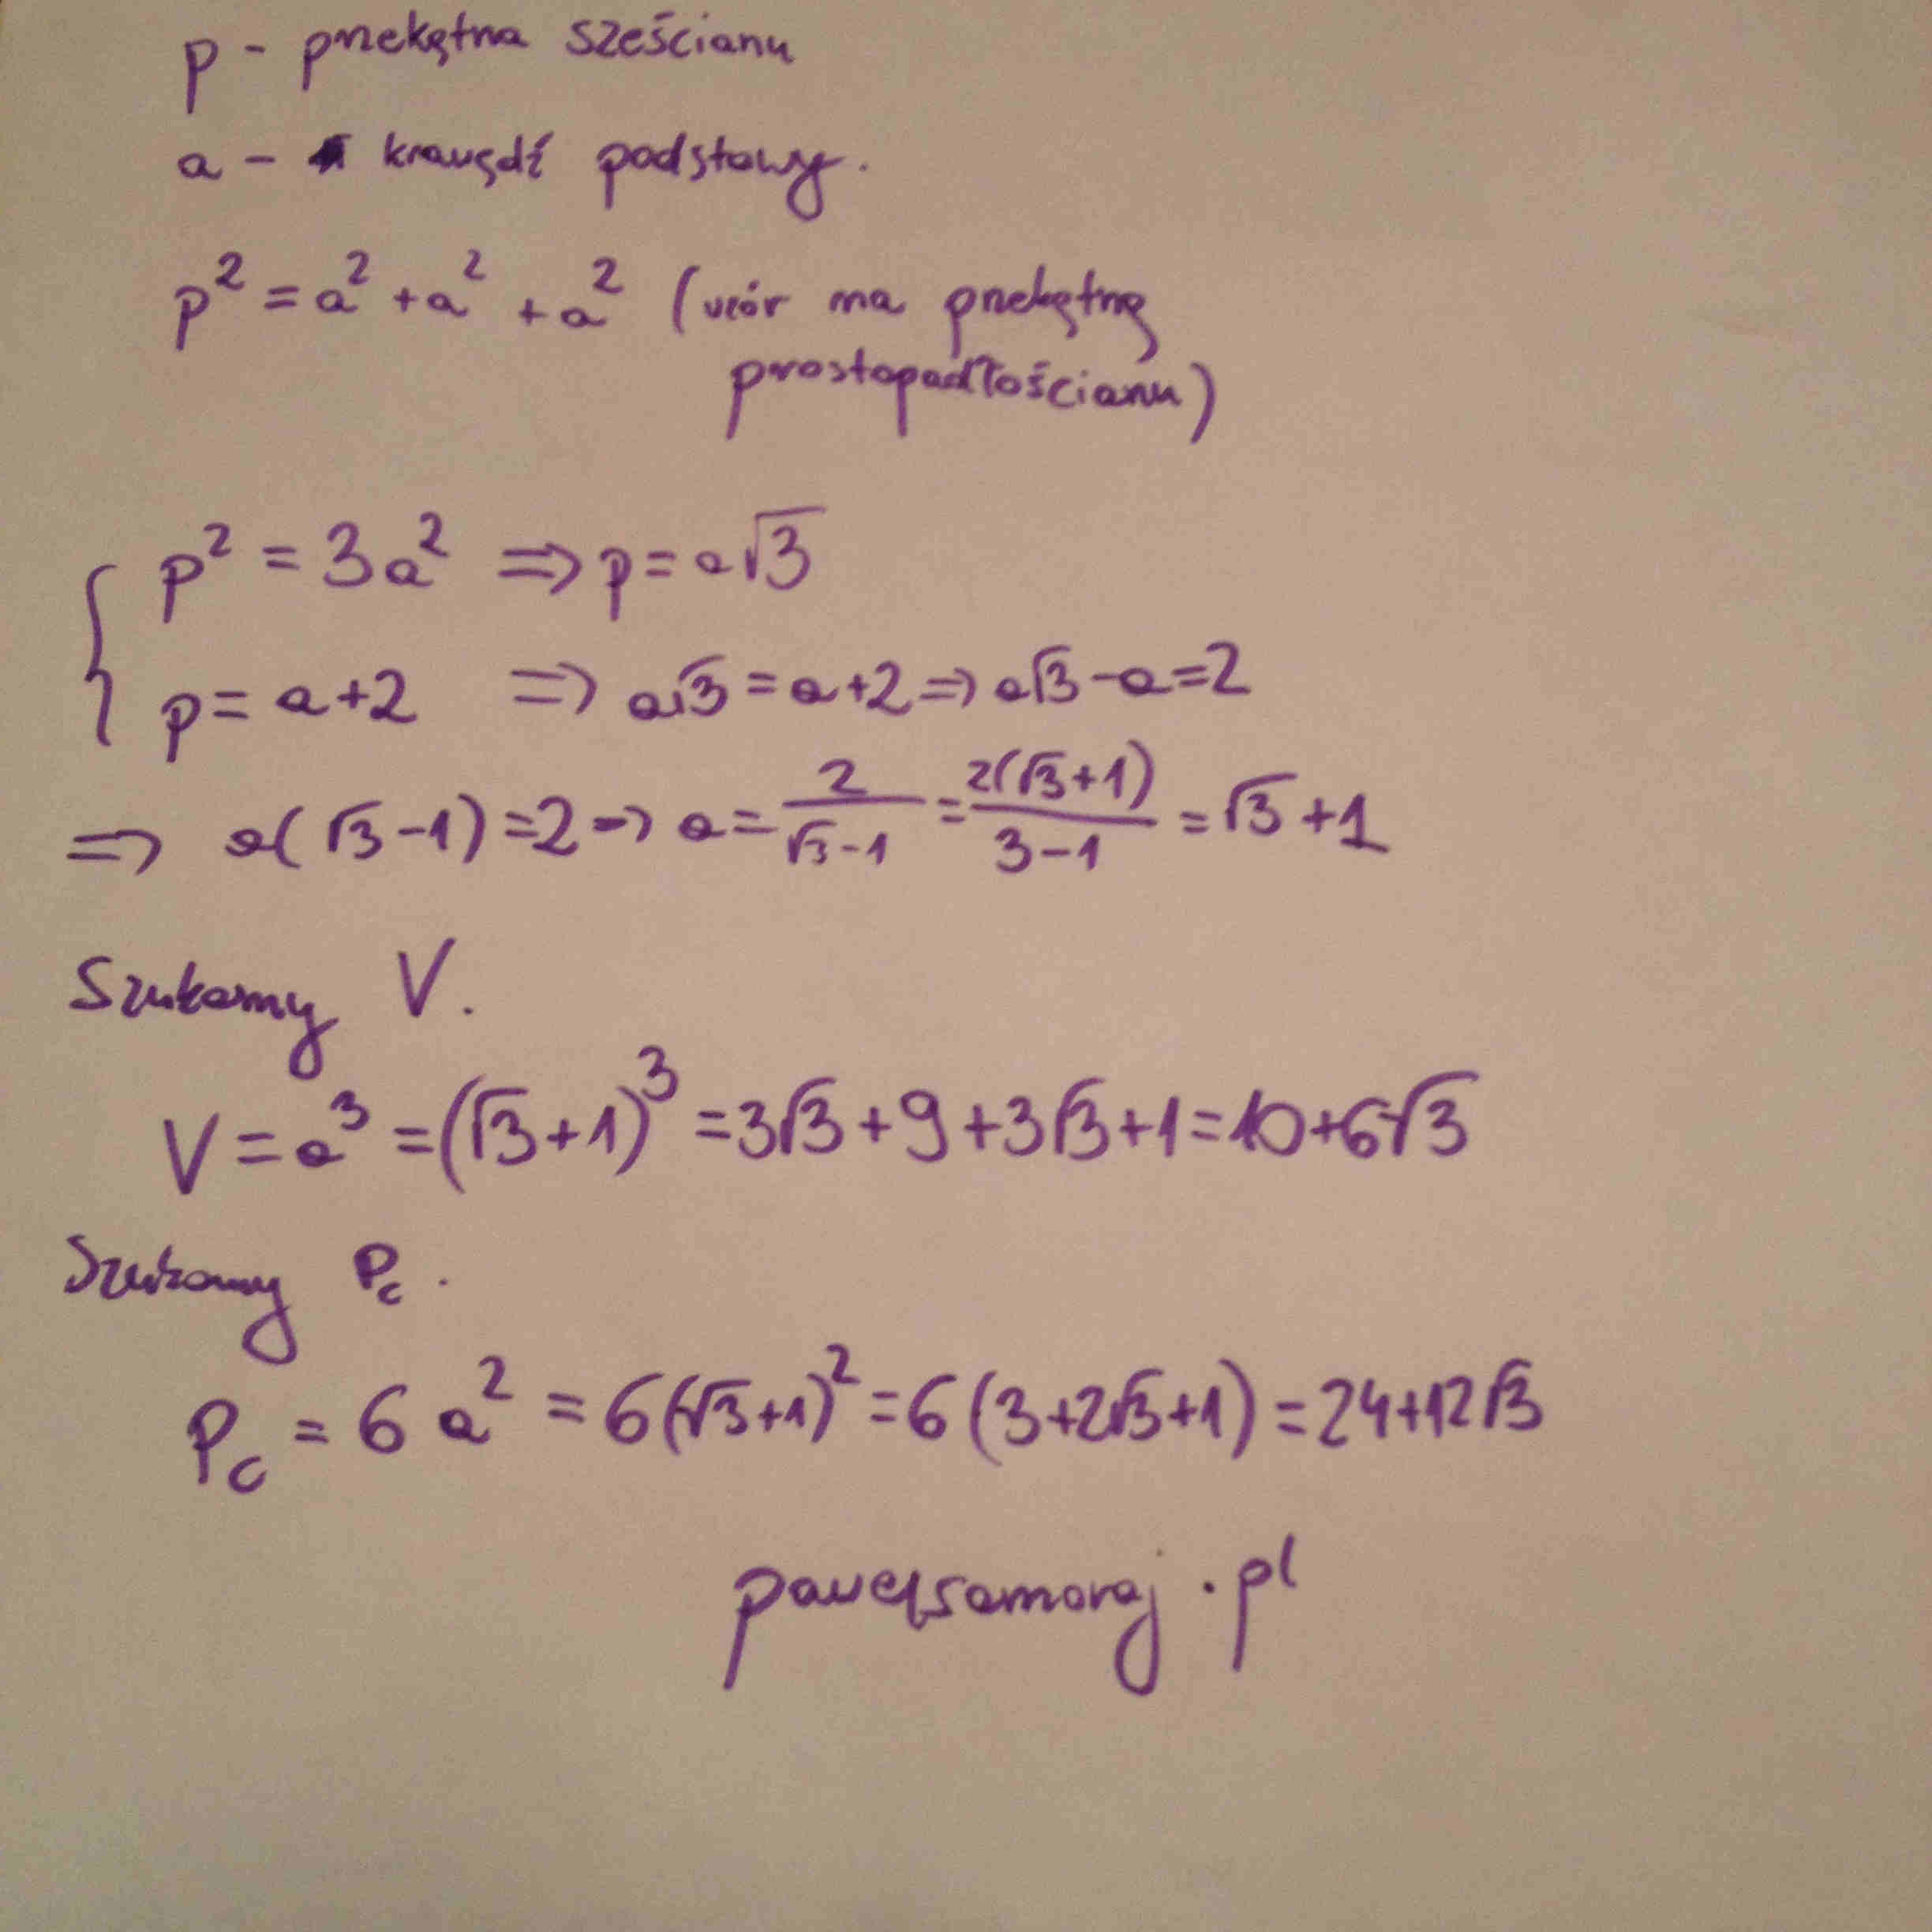 p - przekątna sześcianu
a - krawędź podstawy.
p² = a² + a² + a² (wzór na przekątną
prostopadłościanu)
p² = 3a² ⇒ p = a√3
p = a+2 ⇒ a√3 = a+2 ⇒ a√3 - a = 2
⇒ a(√3-1) = 2 ⇒ a = 2/(√3-1) = 2(√3+1)/(3-1) = √3+1
Szukamy V.
V = a³ = (√3+1)³ = 3√3+9+3√3+1 = 10+6√3
Szukamy Pc.
Pc = 6a² = 6(√3+1)² = 6(3+2√3+1) = 24+12√3
pawelsamoraj.pl